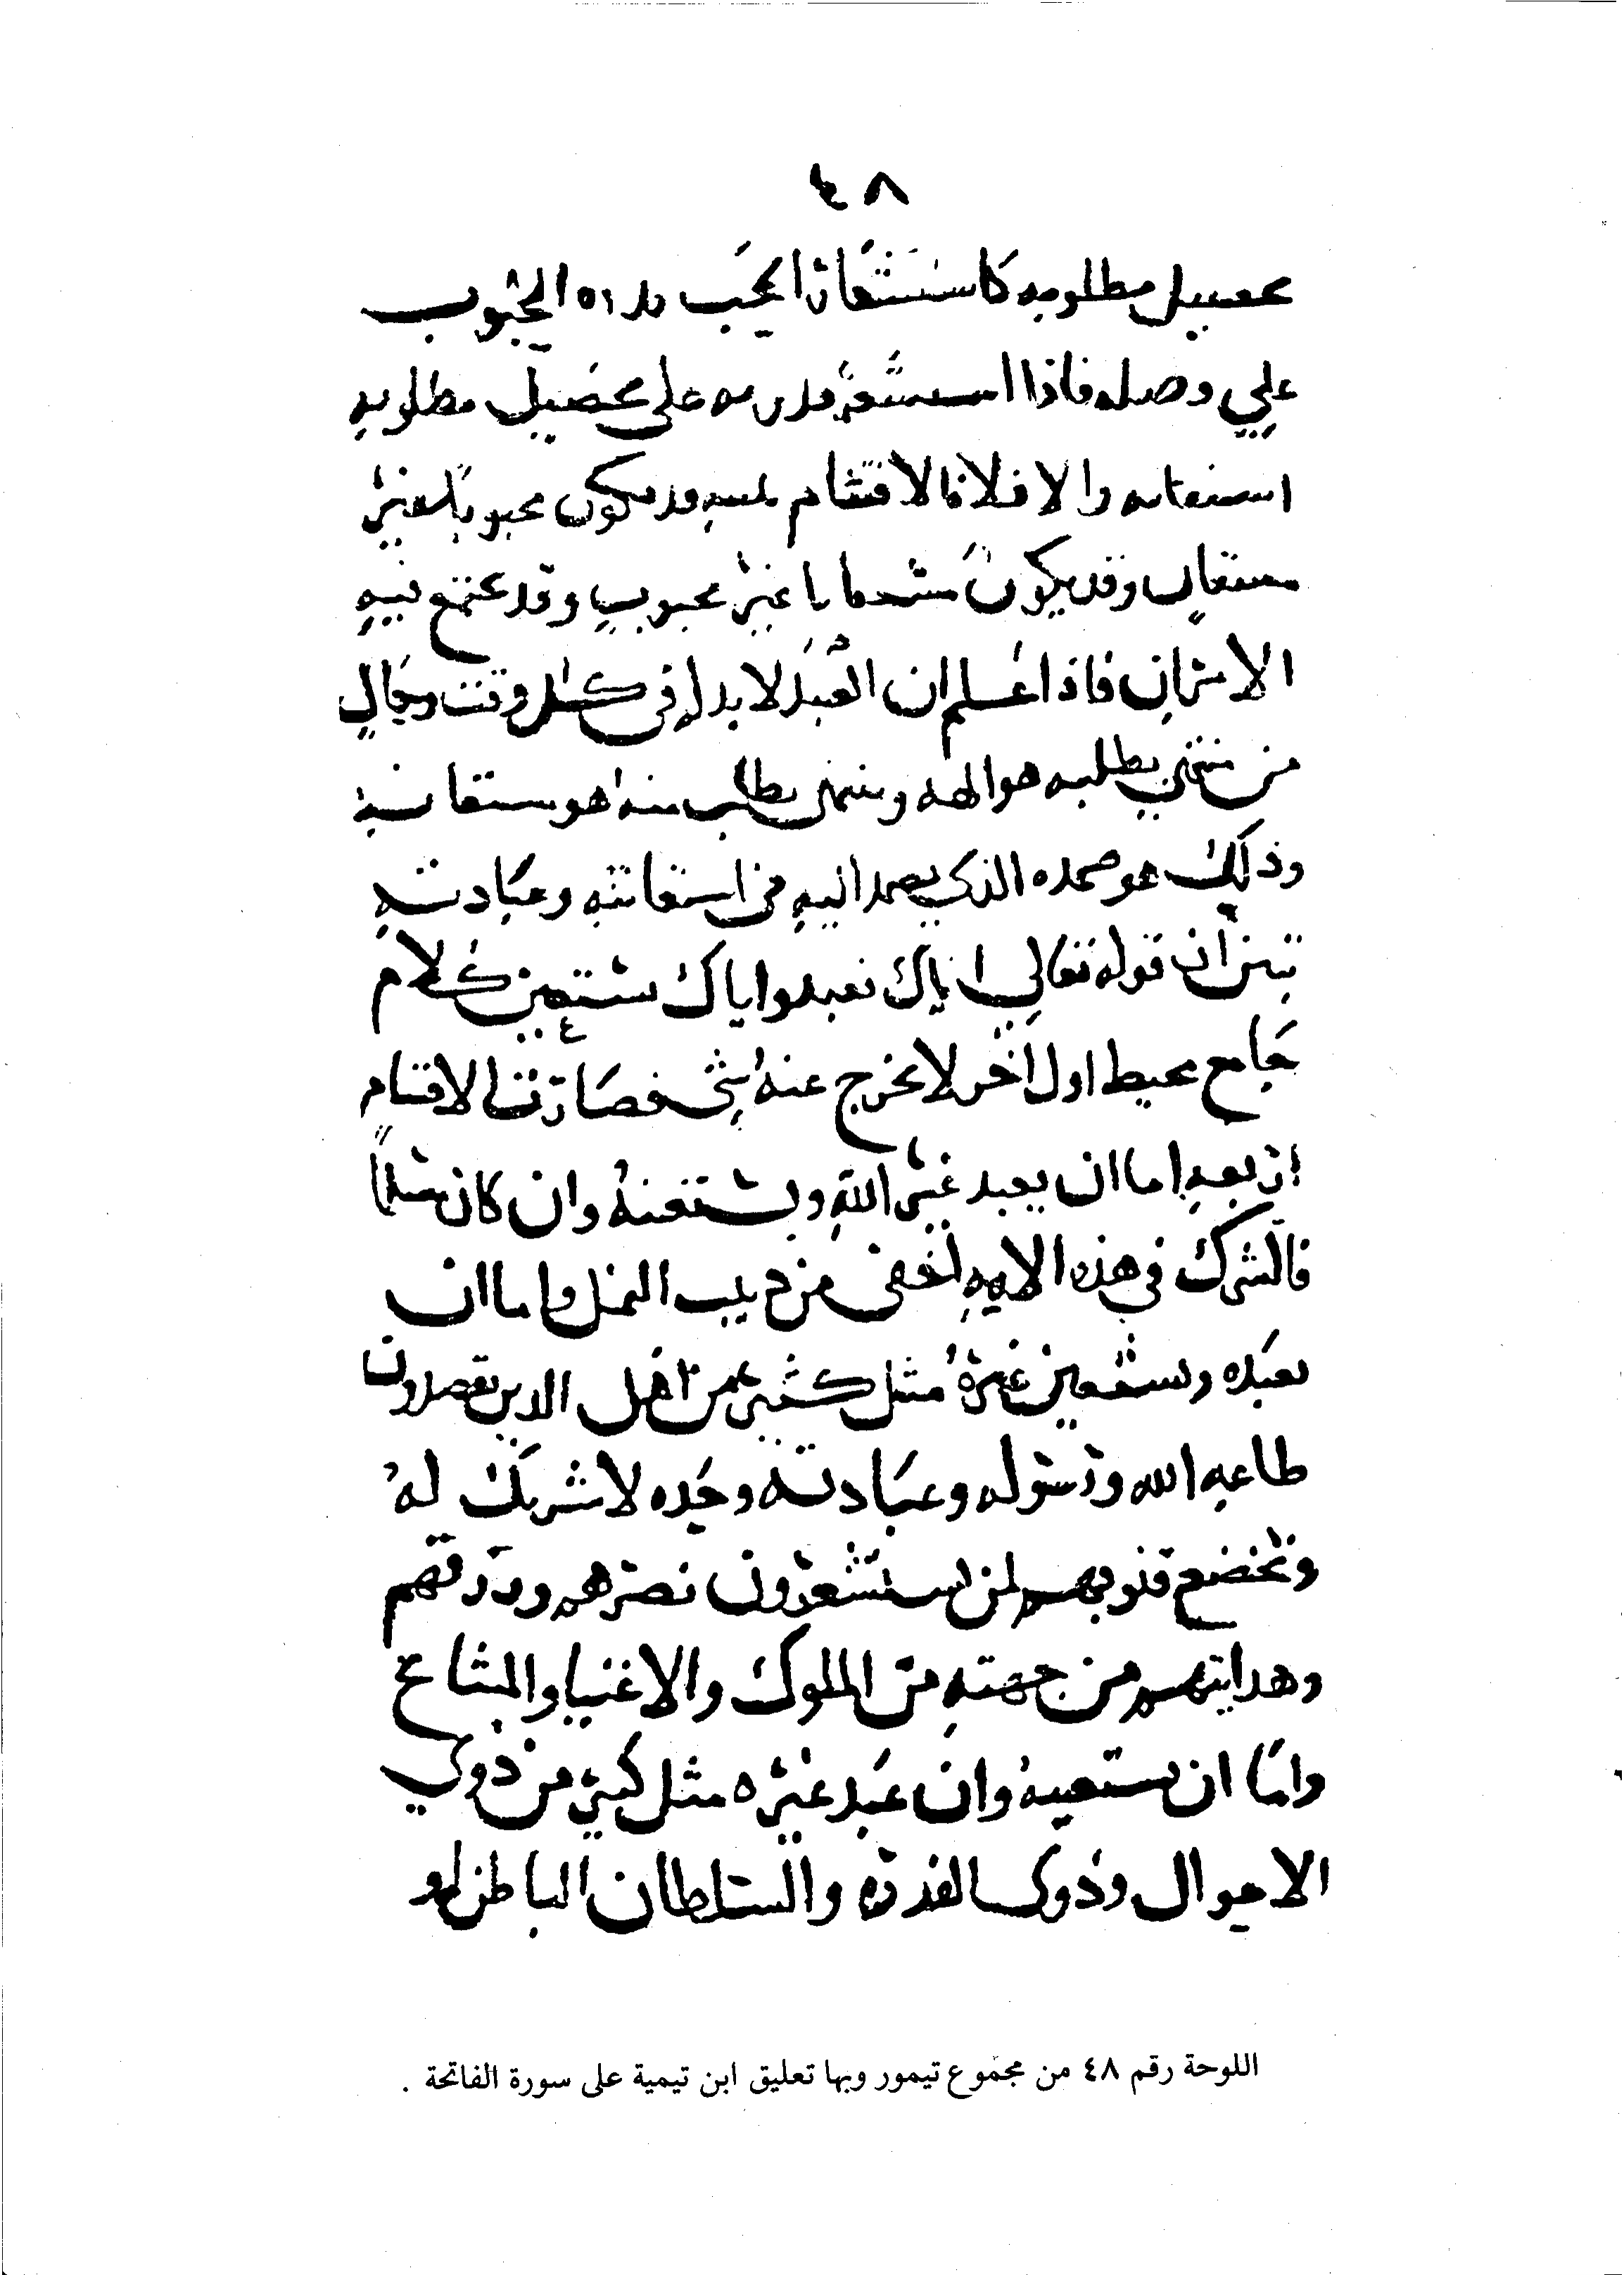 ٤٨
تحصيل مطلوبه كاستشعار المحب قدرة المحبوب
علي وصله فاذا استشعر قدرته على تحصيل مطلوبه
استعانه والا فلا فالاقسام ثلثه قد يكون محبوبا غير
مستعان وقد يكون مستعانا غير محبوب وقد يجتمع فيه
الامران فاذا علم ان العبد لا بد له في كل وقت وحال
من منتهى يطلبه هو الهه ومنتهى يطلب منه هو مستعانه
وذلك هو صمده الذي يصمد اليه في استعانته وعبادته
تبين ان قوله تعالي اياك نعبد واياك نستعين كلام
جامع محيط اول اخر لا يخرج عنه شي فصارت الاقسام
اربعه اما ان يعبد غير الله ويستعينه وان كان مسلما
فالشرك في هذه الامه اخفى من دبيب النمل واما ان
يعبده ويستعين غيره مثل كثير من اهل الدين يقصدون
طاعه الله ورسوله وعبادته وحده لا شريك له
وتخضع قلوبهم لمن يستشعرون نصرهم ورزقهم
وهدايتهم من جهته من الملوك والاغنيا والمشايخ
واما ان يستعينه وان عبد غيره مثل كثير من ذوي
الاحوال وذوي القدرة والسلطان الباطن او
اللوحة رقم ٤٨ من مجموع تيمور وبها تعليق ابن تيمية على سورة الفاتحة .